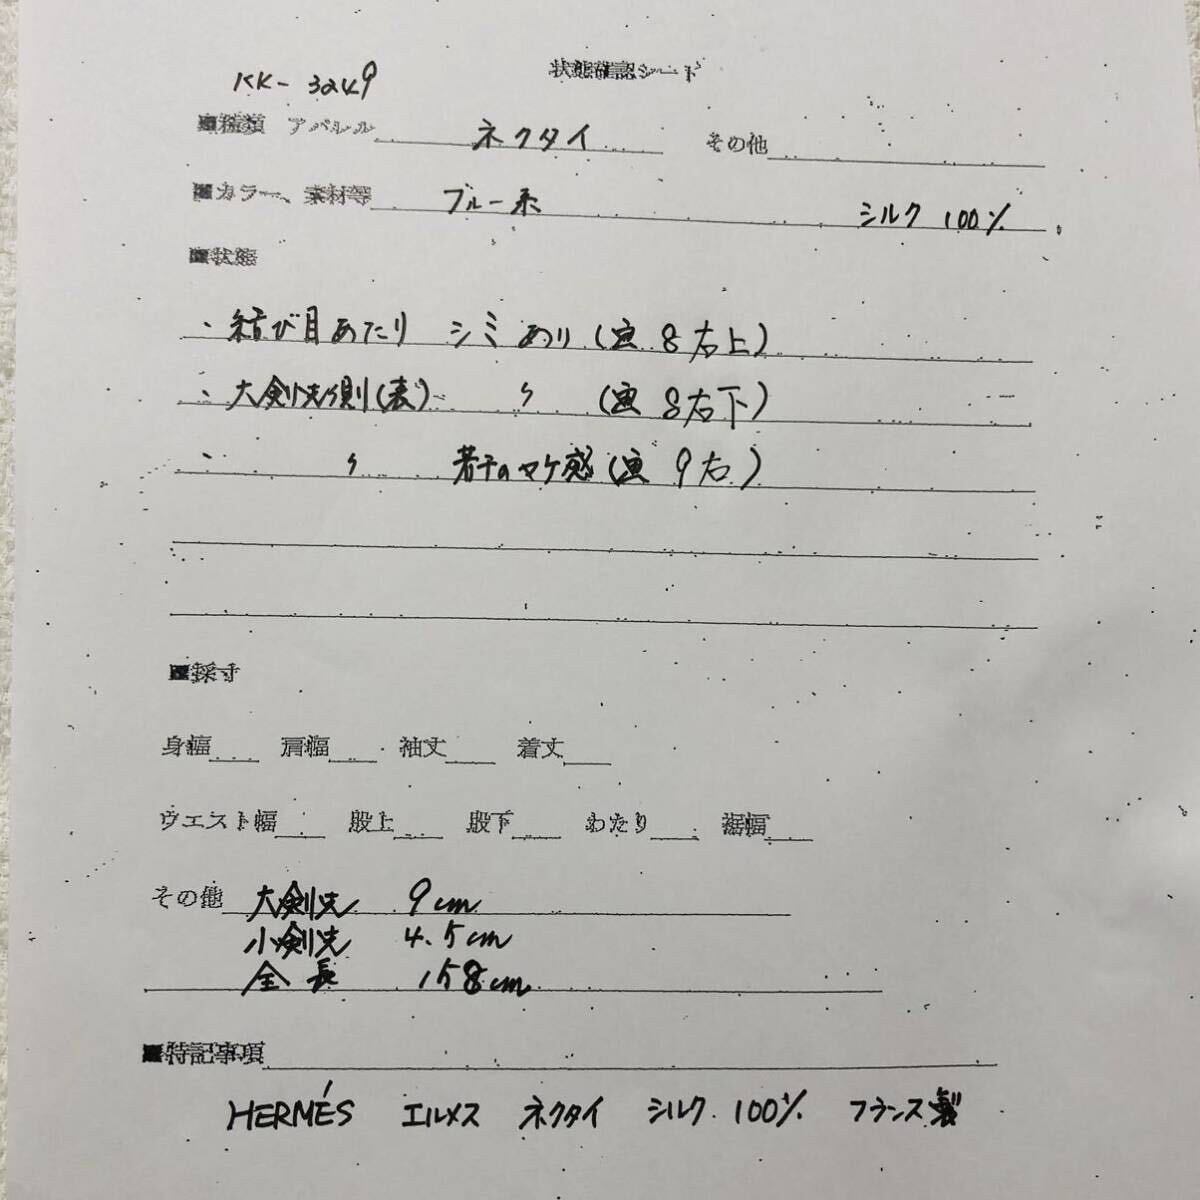 状態確認シート
KK-3249
■種類 アパレル ネクタイ その他
■カラー、素材等 ブルー系 シルク 100%
■状態
・結び目あたり シミあり(画 8右上)
・大剣先側(表) 〃 (画 8右下)
・ 〃 若干のヤケ感(画 9右)
■採寸
身幅 肩幅 袖丈 着丈
ウエスト幅 股上 股下 わたり 裾幅
その他 大剣先 9cm
小剣先 4.5cm
全長 158cm
■特記事項
HERMÉS エルメス ネクタイ シルク 100% フランス製